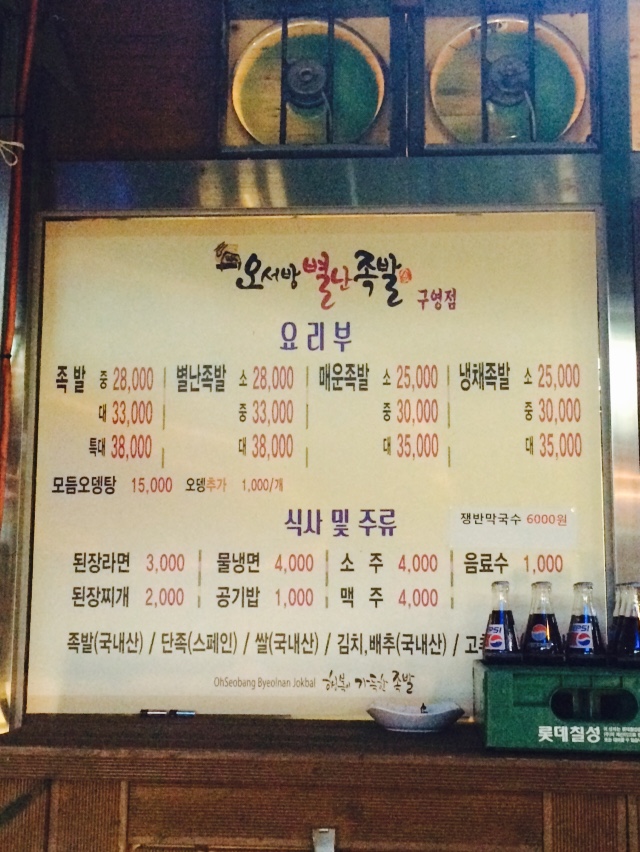 오서방 별난족발 구영점
요리부
족 발 중 28,000 별난족발 소 28,000 매운족발 소 25,000 냉채족발 소 25,000
대 33,000 중 33,000 중 30,000 중 30,000
특대 38,000 대 38,000 대 35,000 대 35,000
모듬오뎅탕 15,000 오뎅추가 1,000/개
식사 및 주류 쟁반막국수 6000원
된장라면 3,000 물냉면 4,000 소 주 4,000 음료수 1,000
된장찌개 2,000 공기밥 1,000 맥 주 4,000
족발(국내산) / 단족(스페인) / 쌀(국내산) / 김치,배추(국내산) / 고
OhSeobang Byeolnan Jokbal 행복이 가득한 족발
PEPSI
롯데칠성